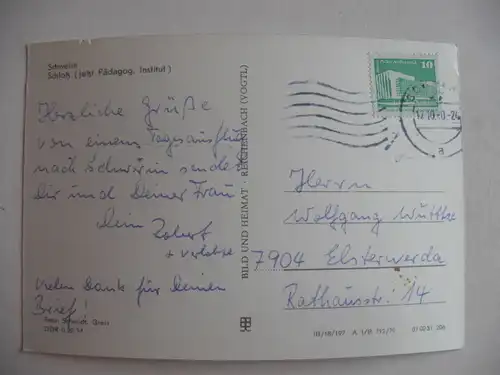 Schwerin
Schloß (jetzt Pädagog. Institut)
Herzliche Grüße
von einem Tagesausflug
nach Schwerin sendet
Dir und Deiner Frau
Dein
Robert
+ Verlobte
Vielen Dank für Deinen
Brief!
Foto: Schmidt, Greiz
BILD UND HEIMAT · REICHENBACH (VOGTL)
10
12.10.80-24
a
Herrn
Wolfgang Wuttke
7904 Elsterwerda
Rathausstr. 14
A 1/B